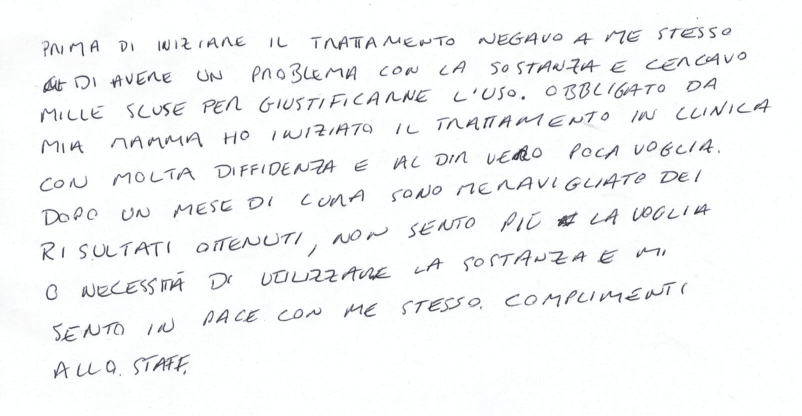 PRIMA DI INIZIARE IL TRATTAMENTO NEGAVO A ME STESSO
DI AVERE UN PROBLEMA CON LA SOSTANZA E CERCAVO
MILLE SCUSE PER GIUSTIFICARNE L'USO. OBBLIGATO DA
MIA MAMMA HO INIZIATO IL TRATTAMENTO IN CLINICA
CON MOLTA DIFFIDENZA E AL DIR VERO POCA VOGLIA.
DOPO UN MESE DI CURA SONO MERAVIGLIATO DEI
RISULTATI OTTENUTI, NON SENTO PIÙ LA VOGLIA
O NECESSITÁ DI UTILIZZARE LA SOSTANZA E MI
SENTO IN PACE CON ME STESSO. COMPLIMENTI
ALLO STAFF.